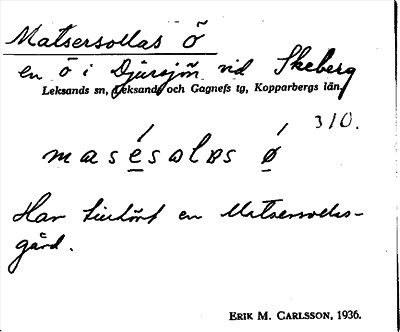 Matsersollas ö
en ö i Djursjön vid Skeberg
Leksands sn, Leksands och Gagnefs tg, Kopparbergs län.
310.
masésalɒs ǿ
Har tillhört en Matsersolas-
gård.
ERIK M. CARLSSON, 1936.